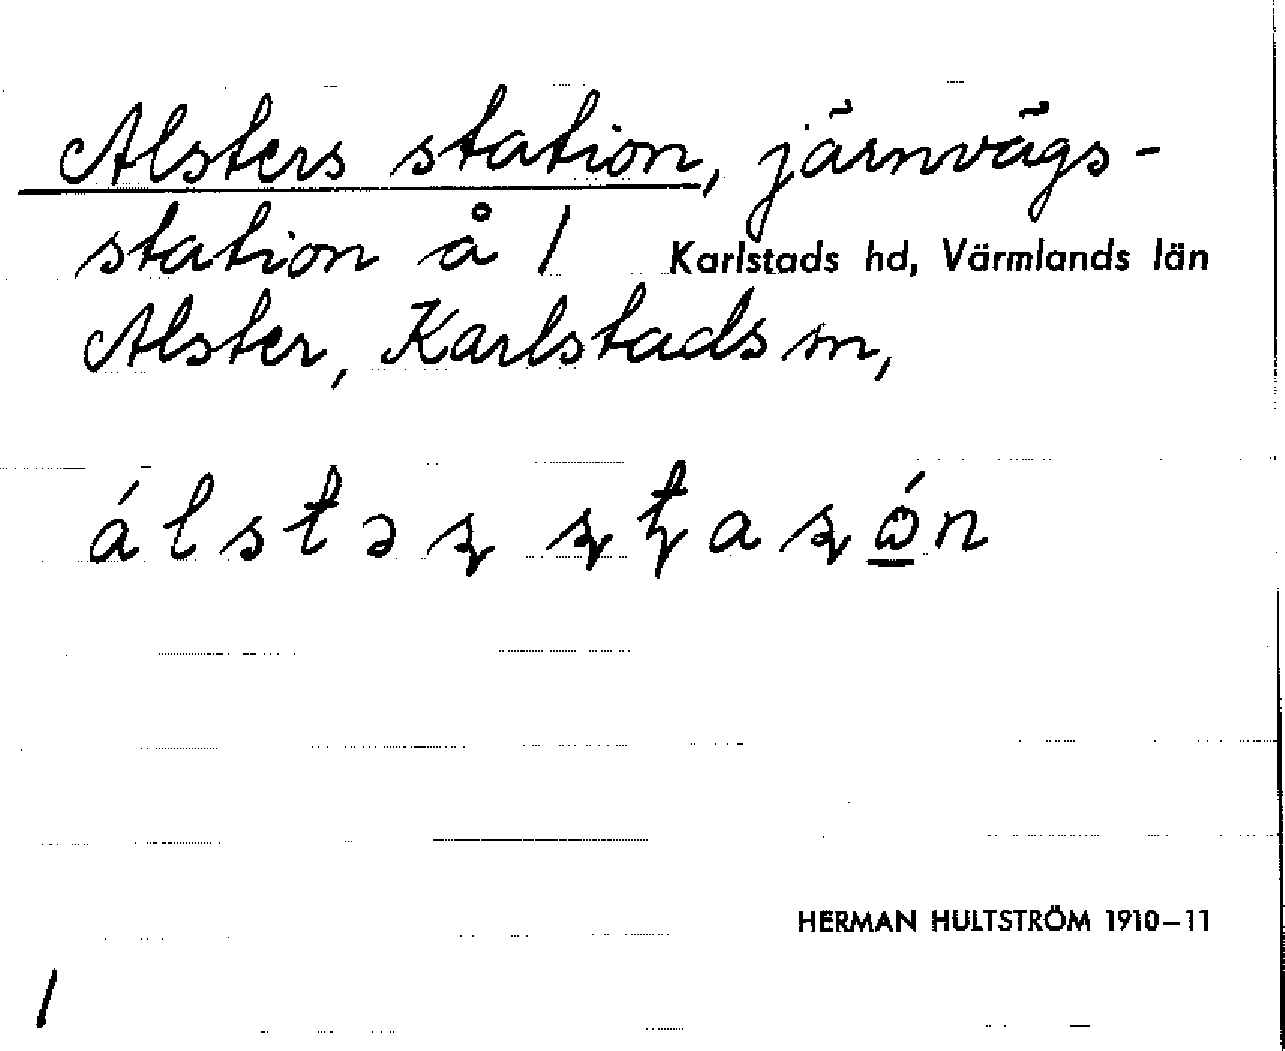 Alsters station, järnvägs-
station å 1
Karlstads hd, Värmlands län
Alster, Karlstads sn,
álstəʂ ʂʈaʂó̱n
HERMAN HULTSTRÖM 1910–11
1